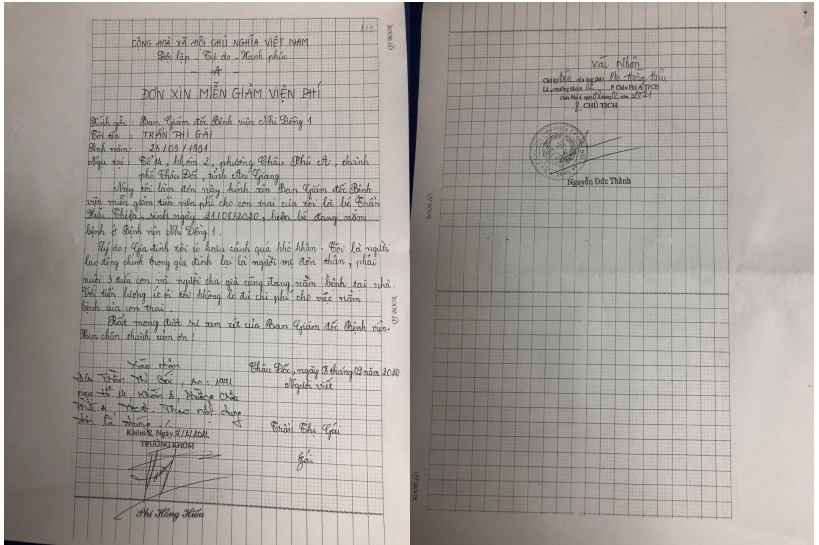 CỘNG HOÀ XÃ HỘI CHỦ NGHĨA VIỆT NAM
Độc lập _ Tự do _ Hạnh phúc
ĐƠN XIN MIỄN GIẢM VIỆN PHÍ
Kính gởi : Ban Giám đốc Bệnh viện Nhi Đồng 1
Tôi tên : TRẦN THỊ GÁI
Sinh năm: 23/09/1991
Ngụ tại : Tổ 14, khóm 2, phường Châu Phú A, thành
phố Châu Đốc, tỉnh An Giang
Nay tôi làm đơn này kính xin Ban Giám đốc Bệnh
viện miễn giảm tiền viện phí cho con trai của tôi là bé Trần
Hữu Thiện, sinh ngày 21/08/2020, hiện bé đang nằm
bệnh ở Bệnh viện Nhi Đồng 1.
Lý do: Gia đình tôi có hoàn cảnh quá khó khăn. Tôi là người
lao động chính trong gia đình lại là người mẹ đơn thân, phải
nuôi 3 đứa con và người cha già cũng đang nằm bệnh tại nhà.
Với tiền lương ít ỏi tôi không lo đủ chi phí cho việc nằm
bệnh của con trai.
Rất mong được sự xem xét của Ban Giám đốc Bệnh viện.
Xin chân thành cảm ơn!
Châu Đốc, ngày 18 tháng 02 năm 2020
Người viết
Trần Thị Gái
Gái
Xác nhận
Trần Thị Gái, sn: 1991
ngụ tổ 14, Khóm 2, Phường Châu
Phú A, Theo nội dung
đơn là đúng
Khóm 2, Ngày
TRƯỞNG KHÓM
Phi Hồng Hiếu
QT-BOOK
QT-BOOK
Xác Nhận
Chữ ký của ông (bà) Phi Hồng Hiếu
Là trưởng khóm 02 P. Châu Phú A, TPCĐ
Châu Phú A, ngày tháng năm 2021
CHỦ TỊCH
Nguyễn Đức Thành
QT-BOOK
QT-BOOK